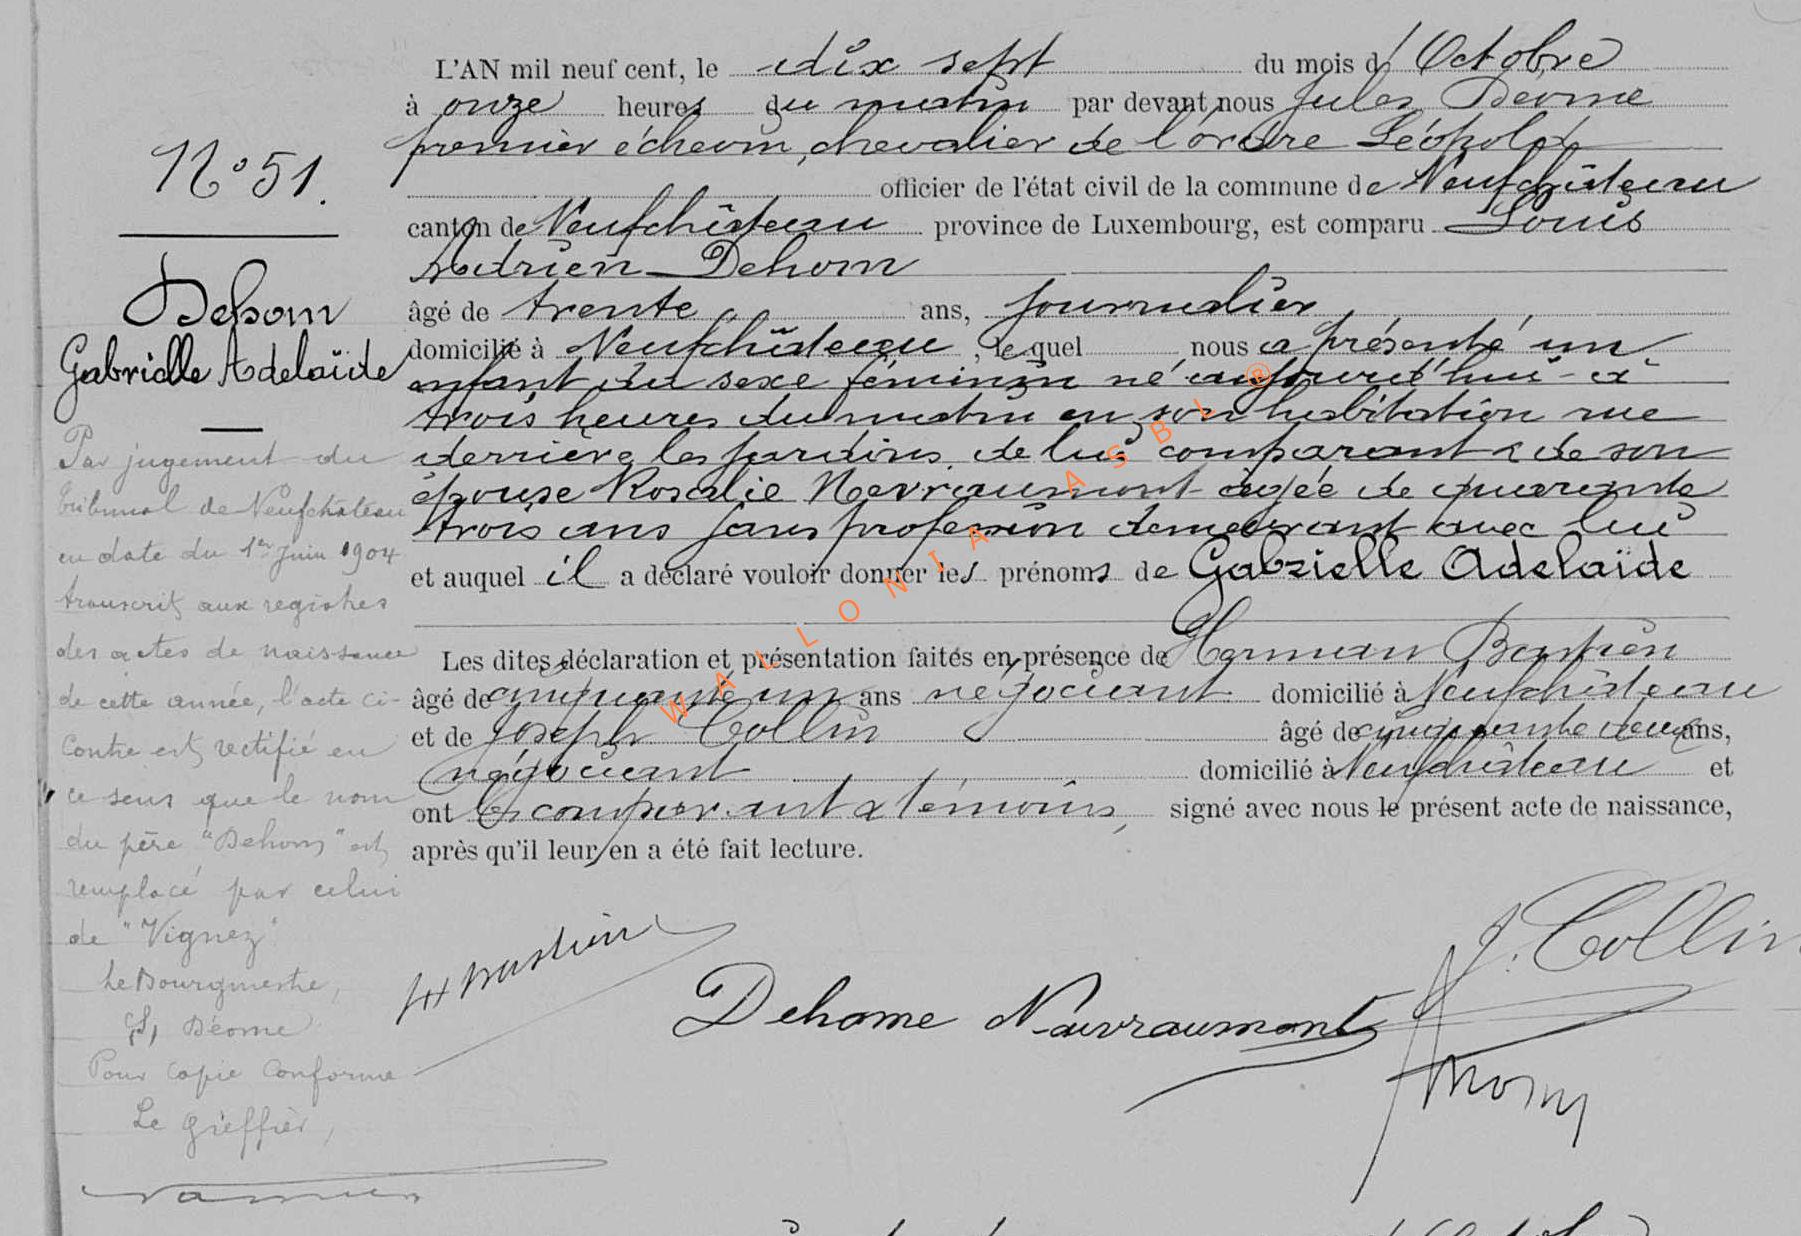 N° 51.
Dehom
Gabrielle Adelaïde
Par jugement du
tribunal de Neufchâteau
en date du 1er Juin 1904
transcrit aux registres
des actes de naissance
de cette année, l'acte ci-
contre est rectifié en
ce sens que le nom
du père "Dehom" est
remplacé par celui
de "Vignez"
Le Bourgmestre,
(s) Déome
Pour copie conforme
Le greffier,
L'AN mil neuf cent, le dix sept du mois d'Octobre
à onze heures du matin par devant nous Jules Déome
premier échevin, chevalier de l'ordre Léopold
officier de l'état civil de la commune de Neufchâteau
canton de Neufchâteau province de Luxembourg, est comparu Louis
Adrien Dehom
âgé de trente ans, journalier
domicilié à Neufchâteau, lequel nous a présenté un
enfant du sexe féminin né aujourd'hui à
trois heures du matin en son habitation rue
derrière les jardins, de lui comparant & de son
épouse Rosalie Nevraumont âgée de quarante
trois ans sans profession demeurant avec lui
et auquel il a déclaré vouloir donner les prénoms de Gabrielle Adelaïde
Les dites déclaration et présentation faites en présence de Herman Bastien
âgé de cinquante un ans négociant domicilié à Neufchâteau
et de Joseph Collin âgé de cinquante deux ans,
négociant domicilié à Neufchâteau et
ont les comparant & témoins, signé avec nous le présent acte de naissance,
après qu'il leur en a été fait lecture.
H Bastien
J. Collin
Dehome Navraumont
WALLONIA ASBL ®